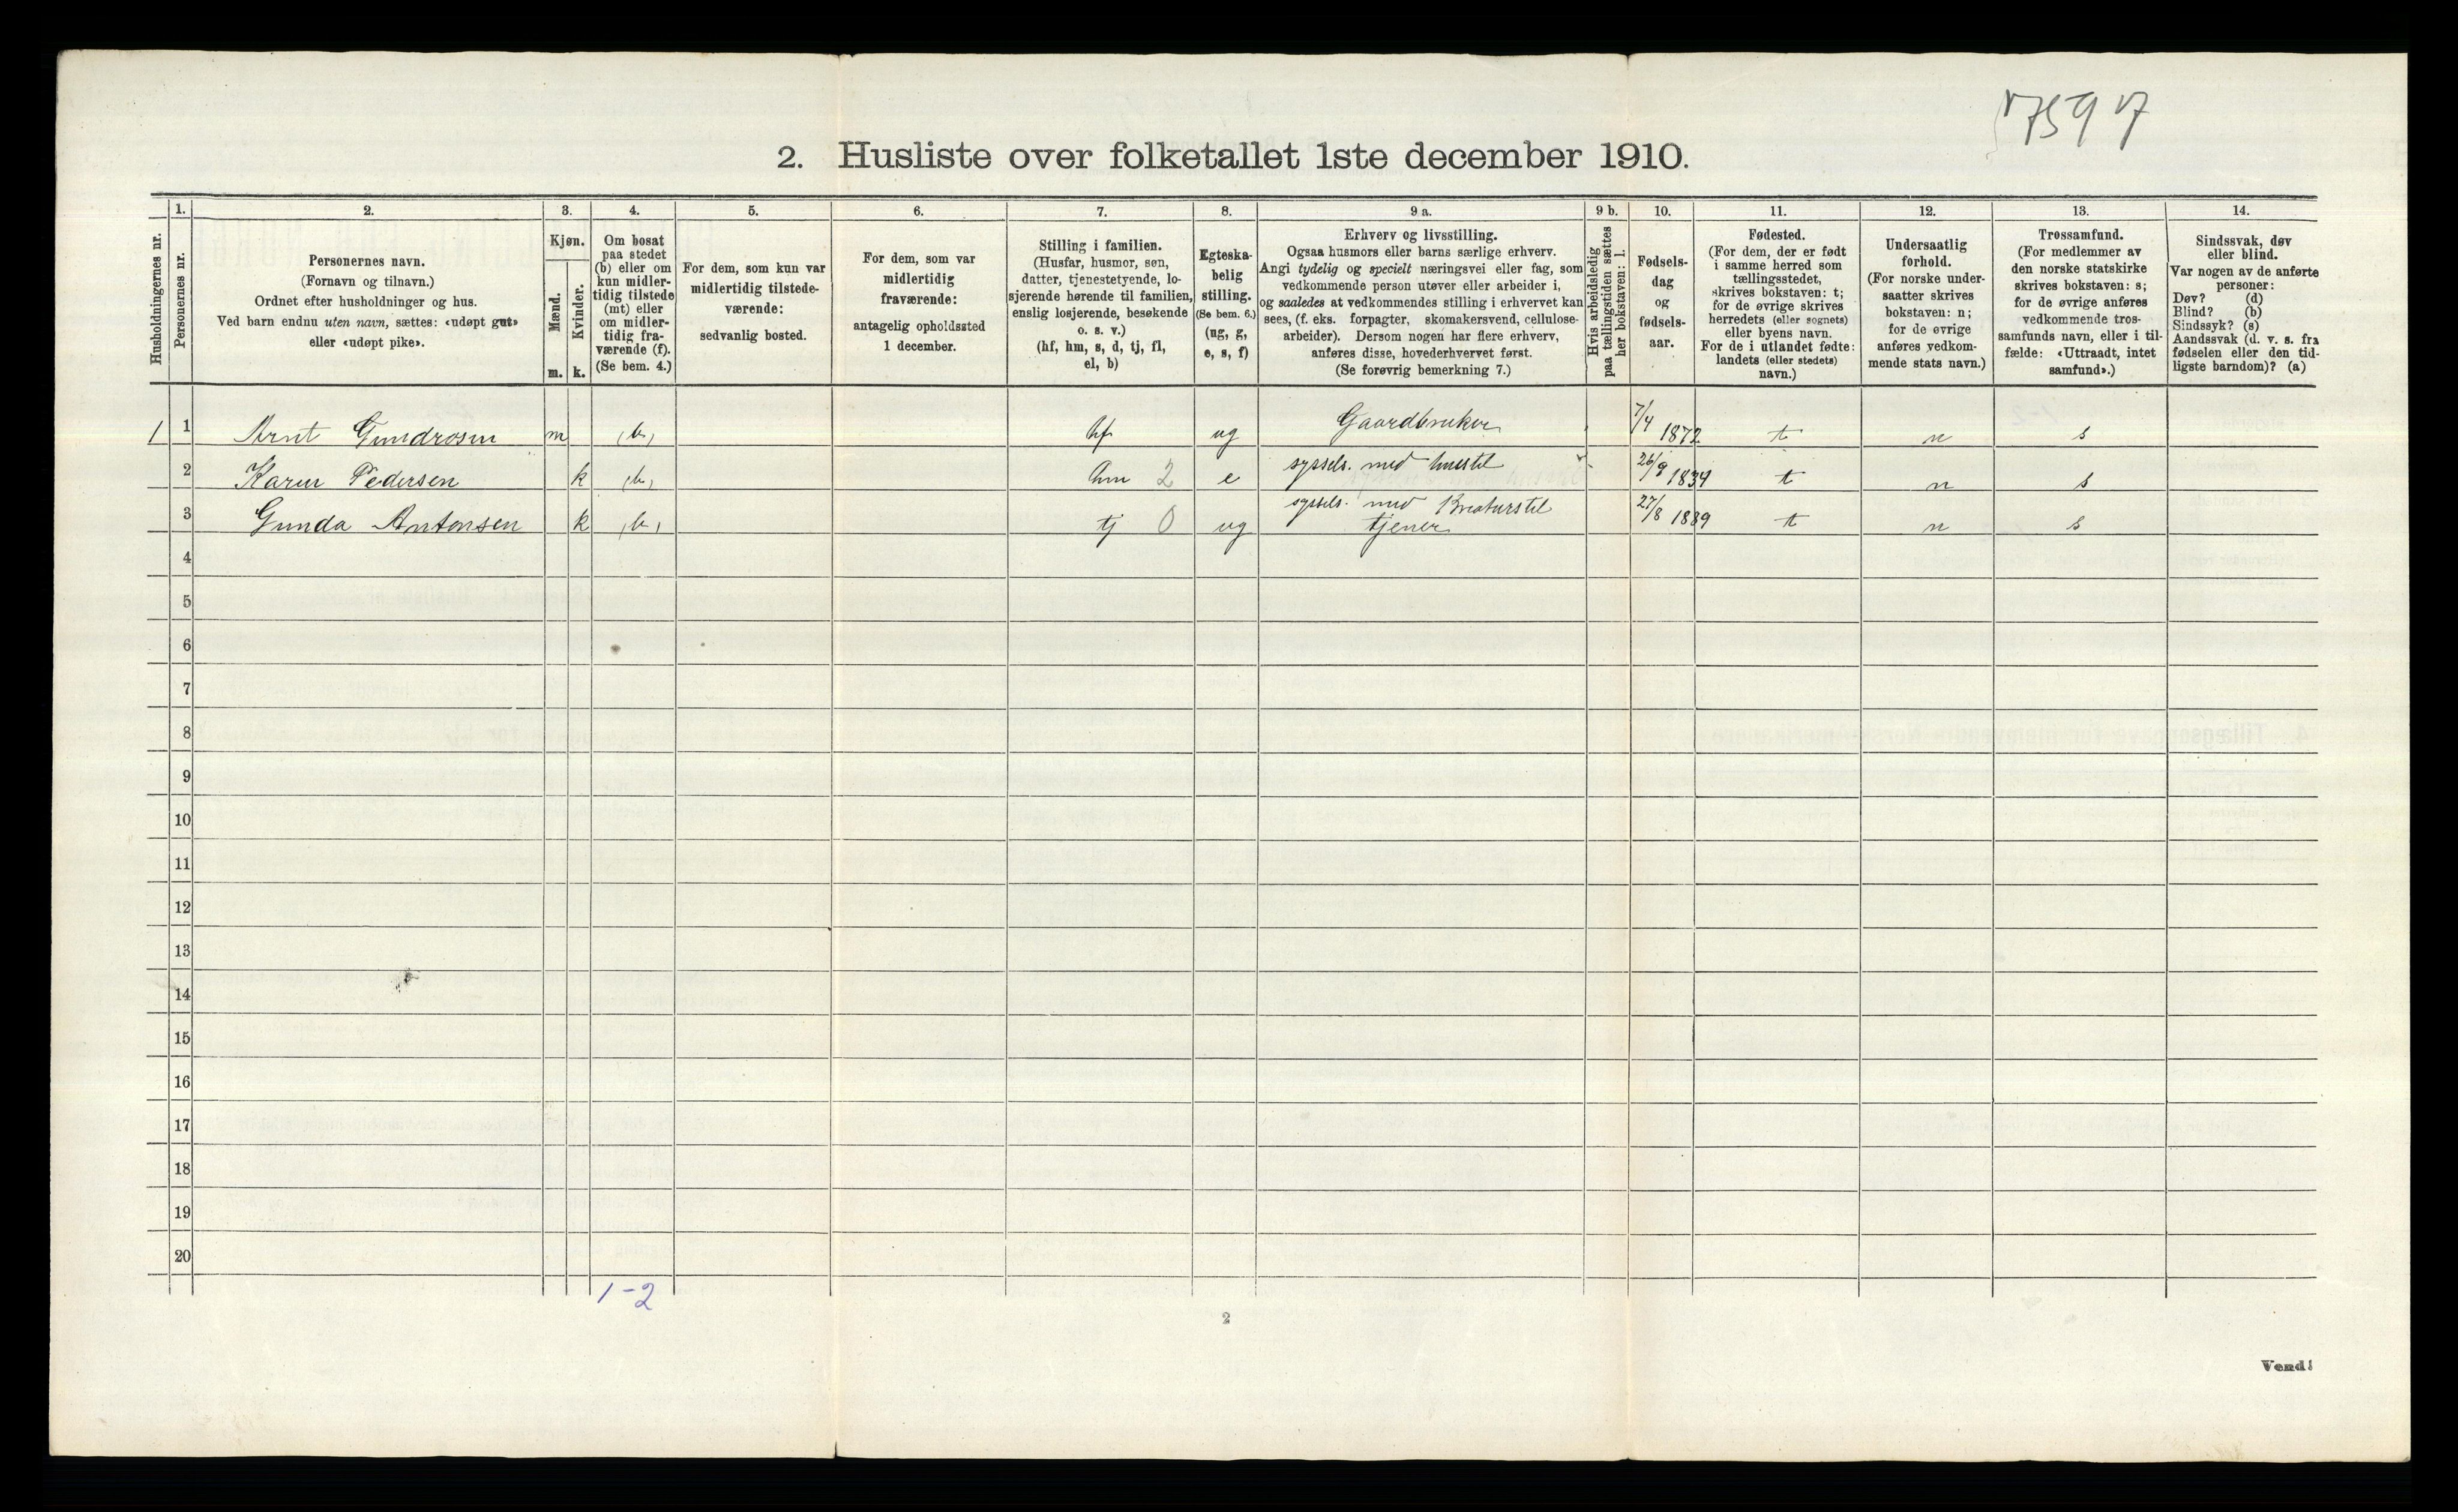 7597
2. Husliste over folketallet 1ste december 1910.
Husholdningernes nr.
1.
Personernes nr.
2.
Personernes navn.
(Fornavn og tilnavn.)
Ordnet efter husholdninger og hus.
Ved barn endnu uten navn, sættes: «udøpt gut»
eller «udøpt pike».
3.
Kjøn.
Mænd.
Kvinder.
m. k.
4.
Om bosat
paa stedet
(b) eller om
kun midler-
tidig tilstede
(mt) eller
om midler-
tidig fra-
værende (f).
(Se bem. 4.)
5.
For dem, som kun var
midlertidig tilstede-
værende:
sedvanlig bosted.
6.
For dem, som var
midlertidig
fraværende:
antagelig opholdssted
1 december.
7.
Stilling i familien.
(Husfar, husmor, søn,
datter, tjenestetyende, lo-
sjerende hørende til familien,
enslig losjerende, besøkende
o. s. v.)
(hf, hm, s, d, tj, fl,
el, b)
8.
Egteska-
belig
stilling.
(Se bem. 6.)
(ug, g,
e, s, f)
9 a.
Erhverv og livsstilling.
Ogsaa husmors eller barns særlige erhverv.
Angi tydelig og specielt næringsvei eller fag, som
vedkommende person utøver eller arbeider i,
og saaledes at vedkommendes stilling i erhvervet kan
sees, (f. eks. forpagter, skomakersvend, cellulose-
arbeider). Dersom nogen har flere erhverv,
anføres disse, hovederhvervet først.
(Se forøvrig bemerkning 7.)
9 b.
Hvis arbeidsledig
paa tællingstiden sættes
her bokstaven: l.
10.
Fødsels-
dag
og
fødsels-
aar.
11.
Fødested.
(For dem, der er født
i samme herred som
tællingsstedet,
skrives bokstaven: t;
for de øvrige skrives
herredets (eller sognets)
eller byens navn.
For de i utlandet fødte:
landets (eller stedets)
navn.)
12.
Undersaatlig
forhold.
(For norske under-
saatter skrives
bokstaven: n;
for de øvrige
anføres vedkom-
mende stats navn.)
13.
Trossamfund.
(For medlemmer av
den norske statskirke
skrives bokstaven: s;
for de øvrige anføres
vedkommende tros-
samfunds navn, eller i til-
fælde: «Uttraadt, intet
samfund».)
14.
Sindssvak, døv
eller blind.
Var nogen av de anførte
personer:
Døv? (d)
Blind? (b)
Sindssyk? (s)
Aandssvak (d. v. s. fra
fødselen eller den tid-
ligste barndom)? (a)
1 1 Arnt Gundrosen m (b) hf ug Gaardbruker 7/4 1872 t n s
2 Karen Pedersen k (b) hm 2 e syssels. med husstel 26/9 1834 t n s
3 Gunda Antonsen k (b) tj 0 ug syssels. med Kreaturstel tjener 27/8 1889 t n s
4
5
6
7
8
9
10
11
12
13
14
15
16
17
18
19
20
1-2
2
Vend!